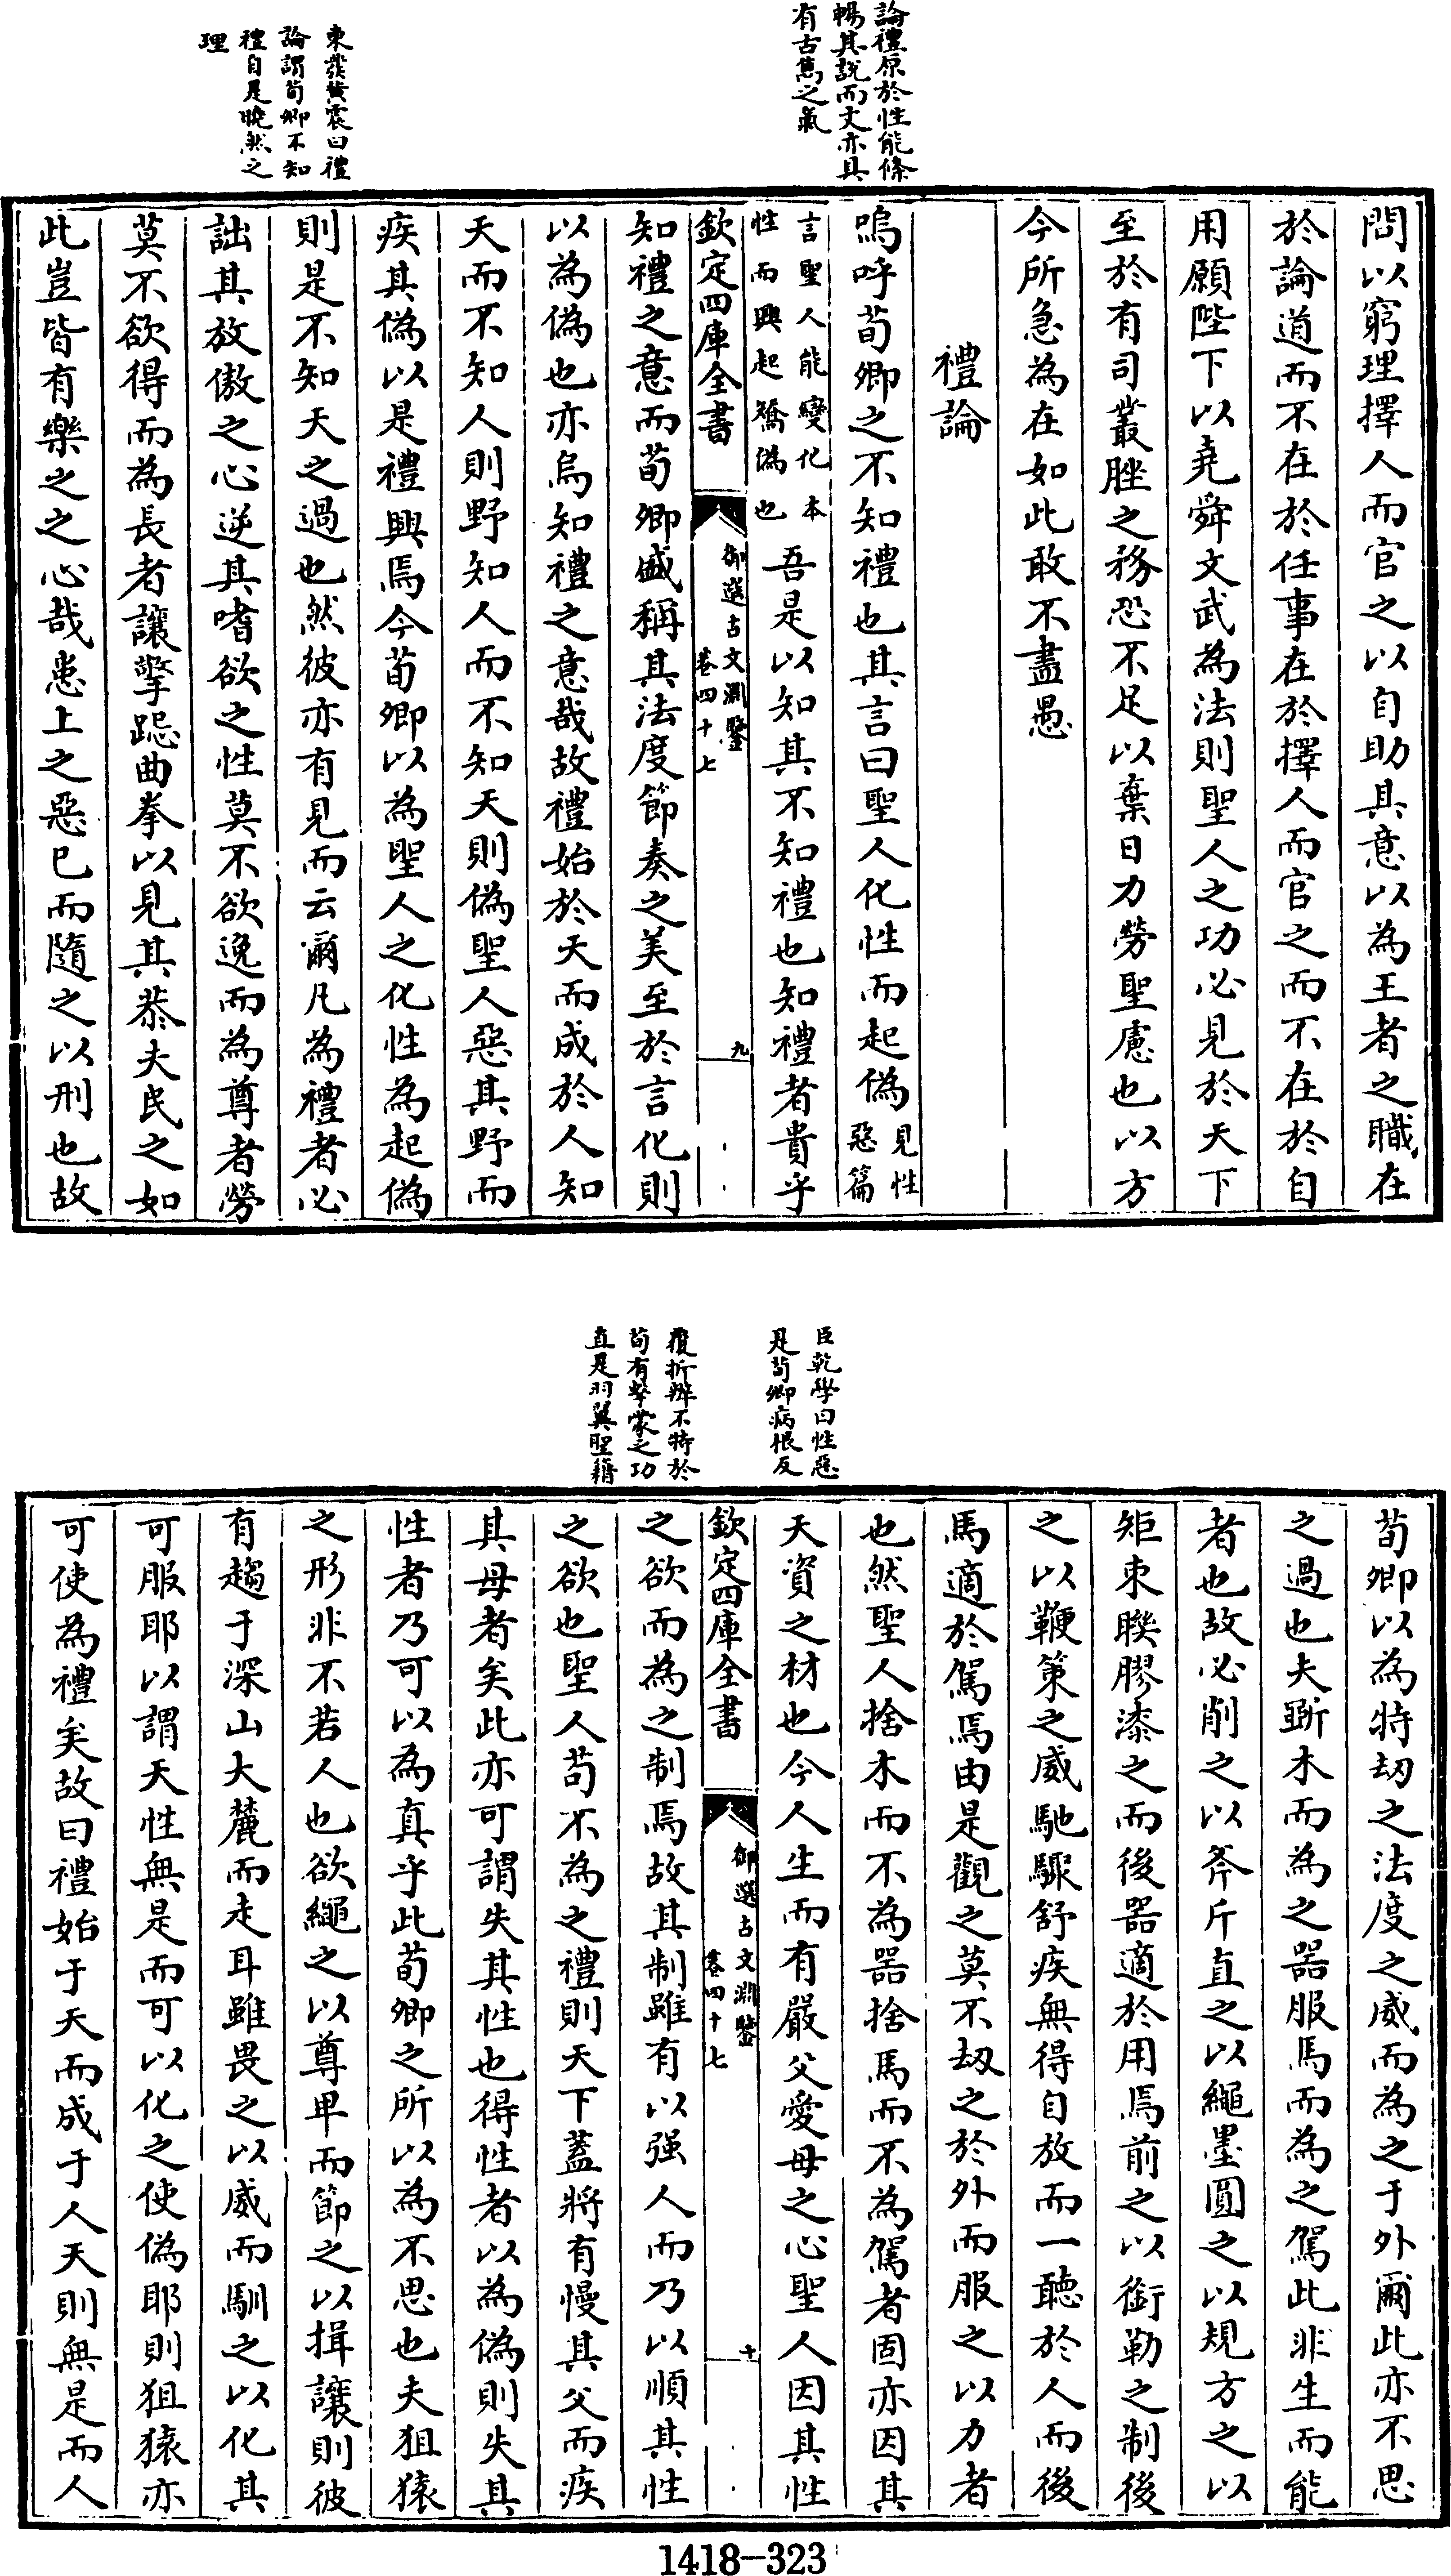 論禮原於性能條
暢其說而文亦具
有古雋之氣
東發黃震曰禮
論謂荀卿不知
禮自是曉然之
理
問以窮理擇人而官之以自助其意以為王者之職在
於論道而不在於任事在於擇人而官之而不在於自
用願陛下以堯舜文武為法則聖人之功必見於天下
至於有司叢脞之務恐不足以棄日力勞聖慮也以方
今所急為在如此敢不盡愚
禮論
嗚呼荀卿之不知禮也其言曰聖人化性而起偽見性惡篇
言聖人能變化本性而興起矯偽也吾是以知其不知禮也知禮者貴乎
欽定四庫全書
御選古文淵鑒
卷四十七
九
知禮之意而荀卿盛稱其法度節奏之美至於言化則
以為偽也亦烏知禮之意哉故禮始於天而成於人知
天而不知人則野知人而不知天則偽聖人惡其野而
疾其偽以是禮興焉今荀卿以為聖人之化性為起偽
則是不知天之過也然彼亦有見而云爾凡為禮者必
詘其放傲之心逆其嗜欲之性莫不欲逸而為尊者勞
莫不欲得而為長者讓擎跽曲拳以見其恭夫民之如
此豈皆有樂之之心哉患上之惡已而隨之以刑也故
臣乾學曰性惡
是荀卿病根反
覆折辨不特於
荀有擊蒙之功
直是羽翼聖籍
荀卿以為特劫之法度之威而為之于外爾此亦不思
之過也夫斲木而為之器服馬而為之駕此非生而能
者也故必削之以斧斤直之以繩墨圓之以規方之以
矩束聨膠漆之而後器適於用焉前之以銜勒之制後
之以鞭策之威馳驟舒疾無得自放而一聽於人而後
馬適於駕焉由是觀之莫不劫之於外而服之以力者
也然聖人捨木而不為器捨馬而不為駕者固亦因其
天資之材也今人生而有嚴父愛母之心聖人因其性
欽定四庫全書
御選古文淵鑒
卷四十七
十
之欲而為之制焉故其制雖有以强人而乃以順其性
之欲也聖人苟不為之禮則天下蓋將有慢其父而疾
其母者矣此亦可謂失其性也得性者以為偽則失其
性者乃可以為真乎此荀卿之所以為不思也夫狙猿
之形非不若人也欲繩之以尊卑而節之以揖讓則彼
有趨于深山大麓而走耳雖畏之以威而馴之以化其
可服耶以謂天性無是而可以化之使偽耶則狙猿亦
可使為禮矣故曰禮始于天而成于人天則無是而人
1418—323